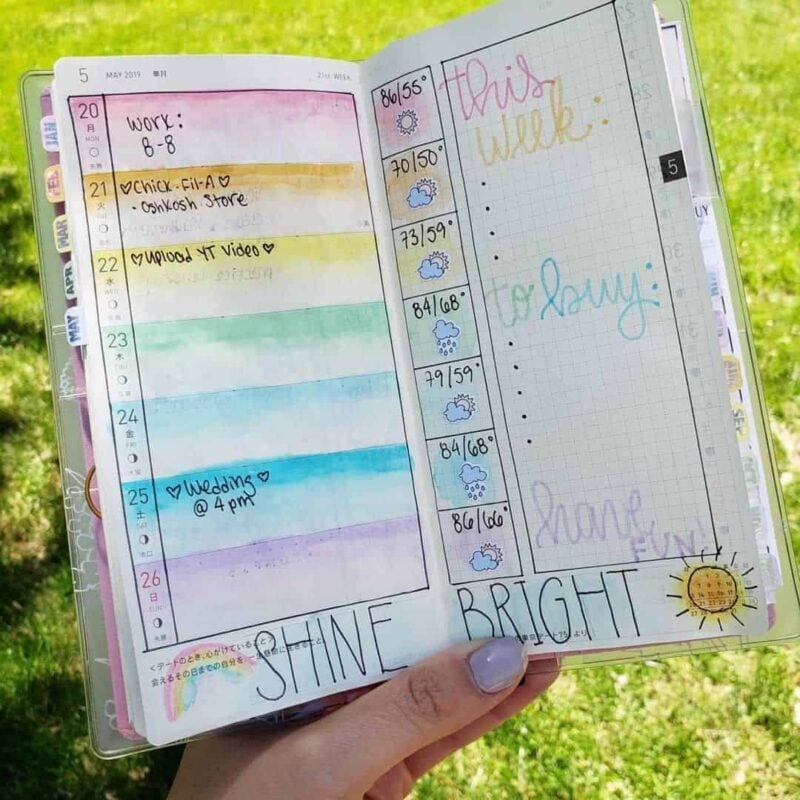 5 MAY 2019 皐月
21st-WEEK
20
月
MON
Work:
8-8
21
火
♡Chick-Fil-A♡
• Oshkosh Store
22
水
WED
♡Upload YT Video♡
23
木
THU
24
金
FRI
25
土
SAT
♡Wedding♡
@ 4pm
26
日
SUN
86/55°
70/50°
73/59°
84/68°
79/59°
84/68°
86/66°
this
week:
to buy:
have
FUN!
5
JAN
FEB
MAR
APR
MAY
UY
SEP
SHINE BRIGHT
<デートのとき、心がけていること>
会えるその日までの自分を